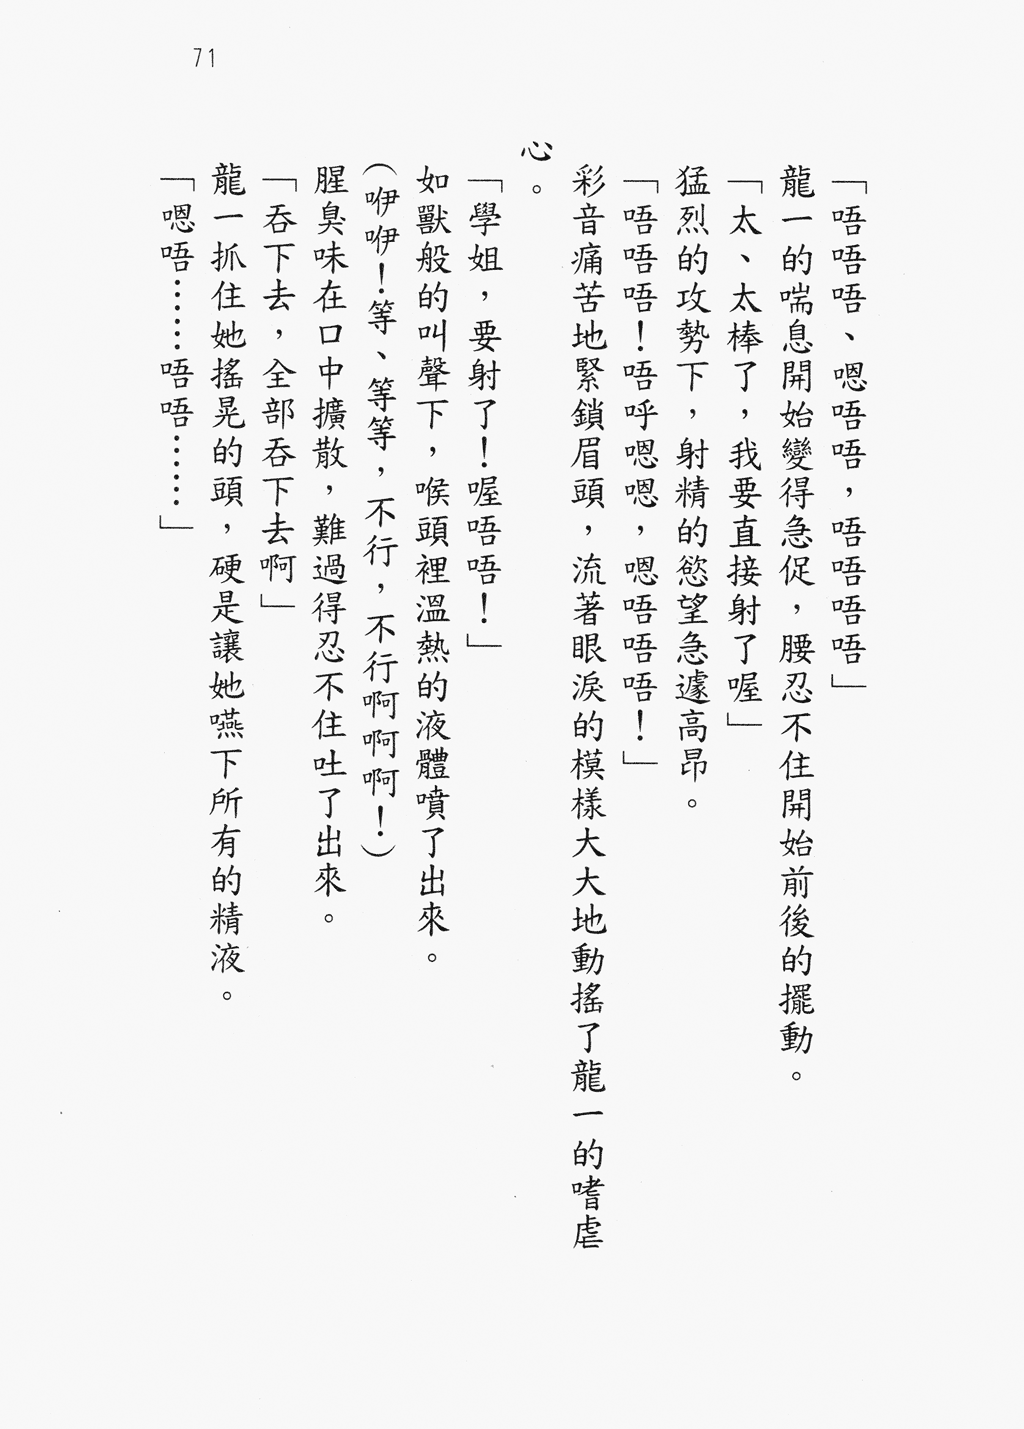 71
「唔唔唔、嗯唔唔，唔唔唔唔」
龍一的喘息開始變得急促，腰忍不住開始前後的擺動。
「太、太棒了，我要直接射了喔」
猛烈的攻勢下，射精的慾望急遽高昂。
「唔唔唔！唔呼嗯嗯，嗯唔唔唔！」
彩音痛苦地緊鎖眉頭，流著眼淚的模樣大大地動搖了龍一的嗜虐
心。
「學姐，要射了！喔唔唔！」
如獸般的叫聲下，喉頭裡溫熱的液體噴了出來。
（咿咿！等、等等，不行，不行啊啊啊！）
腥臭味在口中擴散，難過得忍不住吐了出來。
「吞下去，全部吞下去啊」
龍一抓住她搖晃的頭，硬是讓她嚥下所有的精液。
「嗯唔……唔唔……」